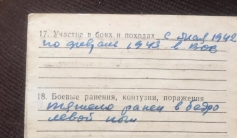 17. Участие в боях и походах с мая 1942
по февраль 1943 в ВОВ
18. Боевые ранения, контузии, поражения
тяжело ранен в бедро
левой ноги